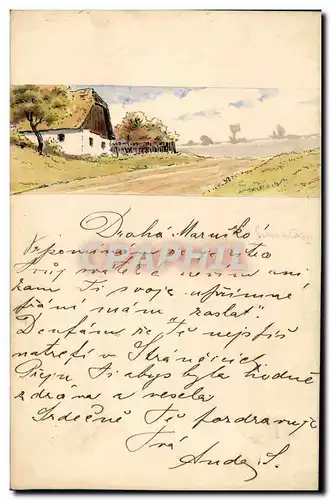 Drahá Maruško
Vzpomínám
Tvůj svátek a nevím ani
kam Ti svoje upřímné
přání mám "zaslat".
Doufám že Tě nejspíš
natrefí v Strančicích
Přeju Ti abys byla hodně
zdráva a vesela
Srdečně Tě pozdravuje
Tvá
Anda S.
CPARAMA